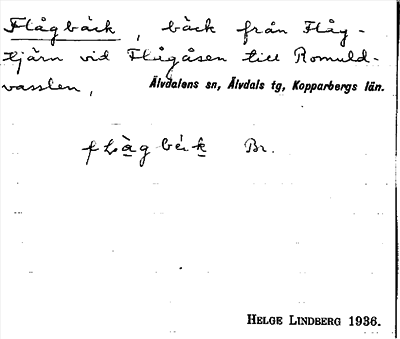 Flågbäck, bäck från Flåg-
tjärn vid Flågåsen till Romuld-
vasslen, Älvdalens sn, Älvdals tg, Kopparbergs län.
Br.
HELGE LINDBERG 1936.